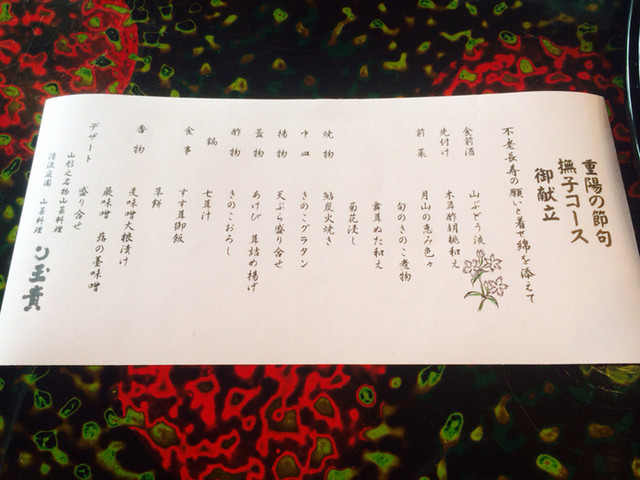 重陽の節句
撫子コース
御献立
不老長寿の願いと着せ綿を添えて
食前酒 山ぶどう液
先付け 木耳酢胡桃和え
前菜 月山の恵み色々
旬のきのこ煮物
舞茸ぬた和え
菊花浸し
焼物 鮎炭火焼き
中皿 きのこグラタン
揚物 天ぷら盛り合せ
蓋物 あけび 茸詰め揚げ
酢物 きのこおろし
鍋 七茸汁
食事 すす茸御飯
草餅
香物 麦味噌大根みつけ
蕨味噌 蕗の薹味噌
デザート 盛り合せ
山形之名物山菜料理
清流庭園 山菜料理
玉貴